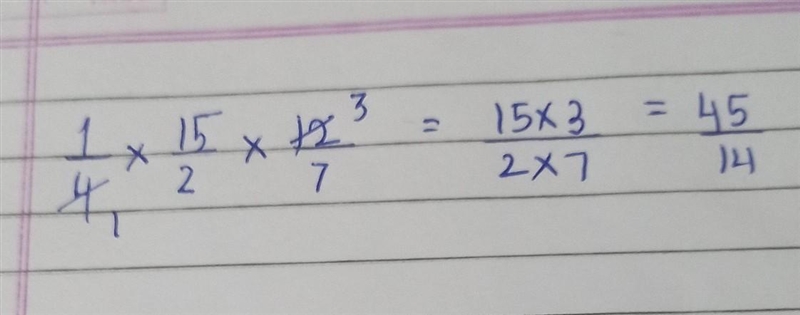 1/4̸ 1 × 15/2 × 1̸2̸ 3/7 = 15×3/2×7 = 45/14